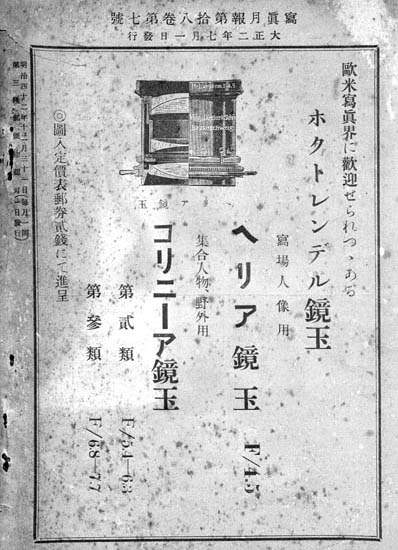 寫眞月報第拾八卷第七號
大正二年七月一日發行
歐米寫眞界に歡迎せられつゝある
ホクトレンデル鏡玉
寫場人像用
ヘリア鏡玉 F/4.5
集合人物、野外用
コリニーア鏡玉
第貳類 F/5.4—6.3
第參類 F/6.8—7.7
ヘリア鏡玉
◎圖入定價表郵券貳錢にて進呈
明治四十二年十二月三十一日
第三種郵便